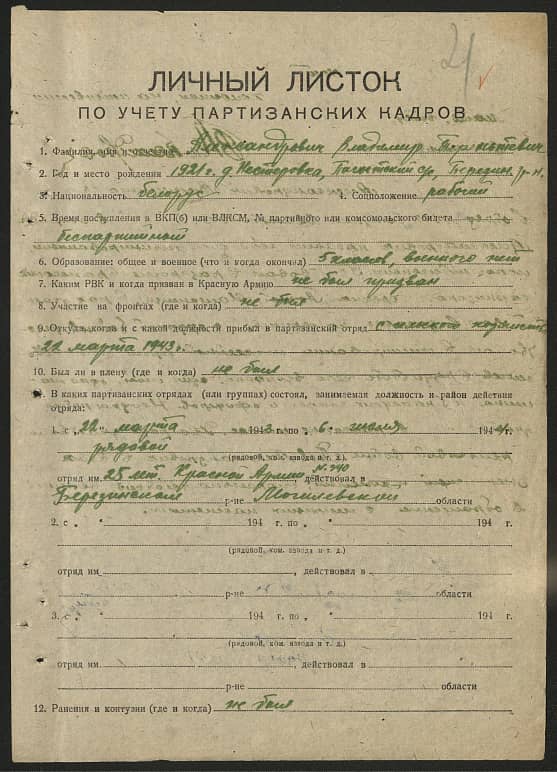 21
ЛИЧНЫЙ ЛИСТОК
ПО УЧЕТУ ПАРТИЗАНСКИХ КАДРОВ
1. Фамилия имя и отчество Александрович Владимир Терентьевич
2. Год и место рождения 1921 г. д. Нестеровка, с/с, Березин. р-н.
3. Национальность белорус 4. Соцположение рабочий
5. Время поступления в ВКП(б) или ВЛКСМ, № партийного или комсомольского билета
беспартийный
6. Образование общее и военное (что и когда окончил) 5 класов, военного нет
7. Каким РВК и когда призван в Красную Армию не был призван
8. Участие на фронтах (где и когда) не был
9. Откуда, когда и с какой должности прибыл в партизанский отряд с
22 марта 1943 г.
10. Был ли в плену (где и когда) не был
В каких партизанских отрядах (или группах) состоял, занимаемая должность и район действия
отряда:
1. с „22„ марта 1943 г. по „6„ июля 1944 г.
рядовой
(рядовой, ком. взвода и т. д.)
отряд им. 25 лет. Красной Армии №240, действовал в
Березинском р-не Могилевской области
2. с „ „ 194 г. по „ „ 194 г.
(рядовой, ком. взвода и т. д.)
отряд им , действовал в
р-не области
3. с „ „ 194 г. по „ „ 194 г.
(рядовой, ком. взвода и т. д.)
отряд им , действовал в
р-не области
12. Ранения и контузии (где и когда) не был